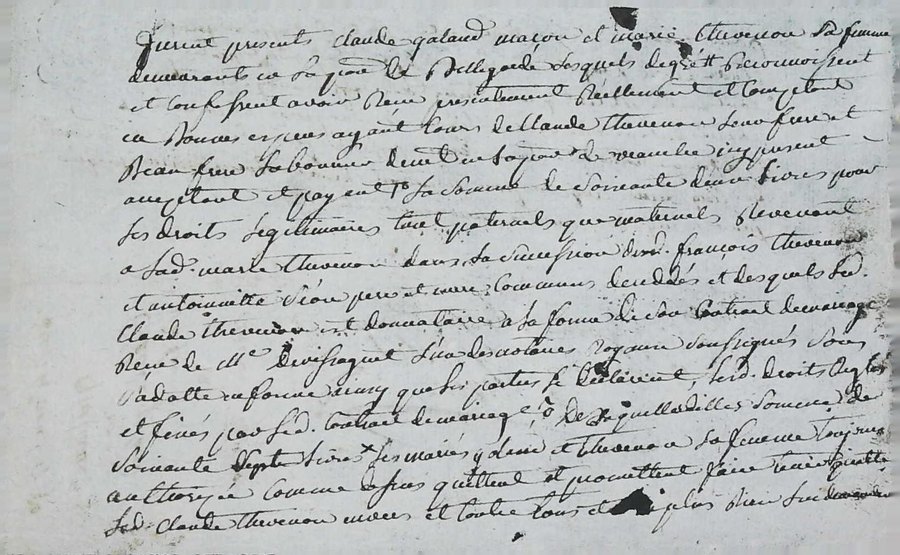 furent presents claude galand maçon et marie thevenon sa femme
demeurants en la paroe de Bellegarde lesquels de gré reconnoissent
et confessent avoir Receu presentement Reellement et comptant
en Bonnes especes ayant cours de Claude thevenon leur frere et
Beau frere laboureur demt en la paroe de icy present
acceptant et payant la somme de soixante deux livres pour
les droits legitimaires tant paternels que maternels Revenant
a lad. marie thevenon dans la succession de françois thevenon
et antoinette pere et mere communs decedés et desquels led.
Claude thevenon est donnataire a la forme de son Contrat de mariage
Receu de Me l'un des notaires Royaux soussignés sous
sa datte en forme ainsy que les parties le declarent, lesd. droits Reglés
et fixés par led. Contrat de mariage a de laquelle somme de
soixante livres les mariés et thevenon sa femme toujours
authorisée comme quittent et promettent faire tenir quitte
led. Claude thevenon envers et contre tous et plus Rien luy demander